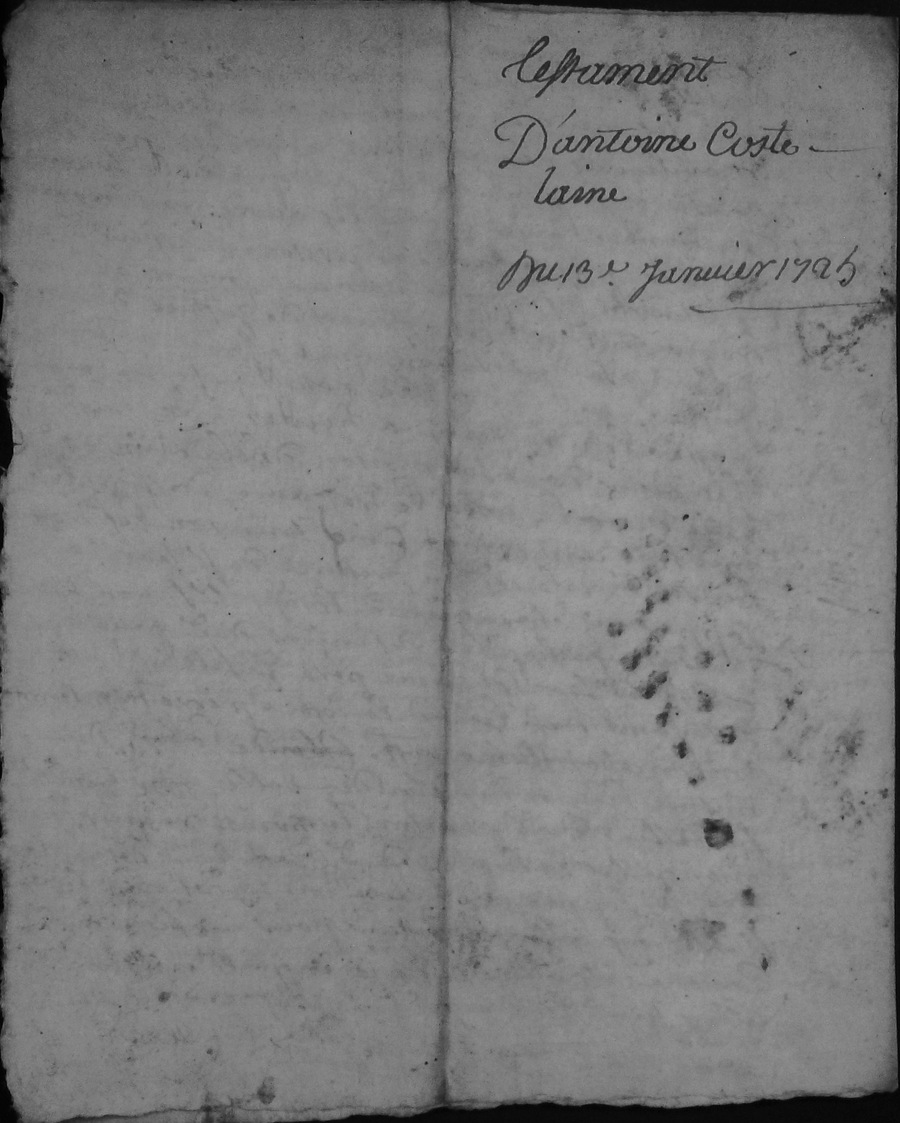 Testament
D'antoine Coste -
laine
Du 13e. Januier 1725